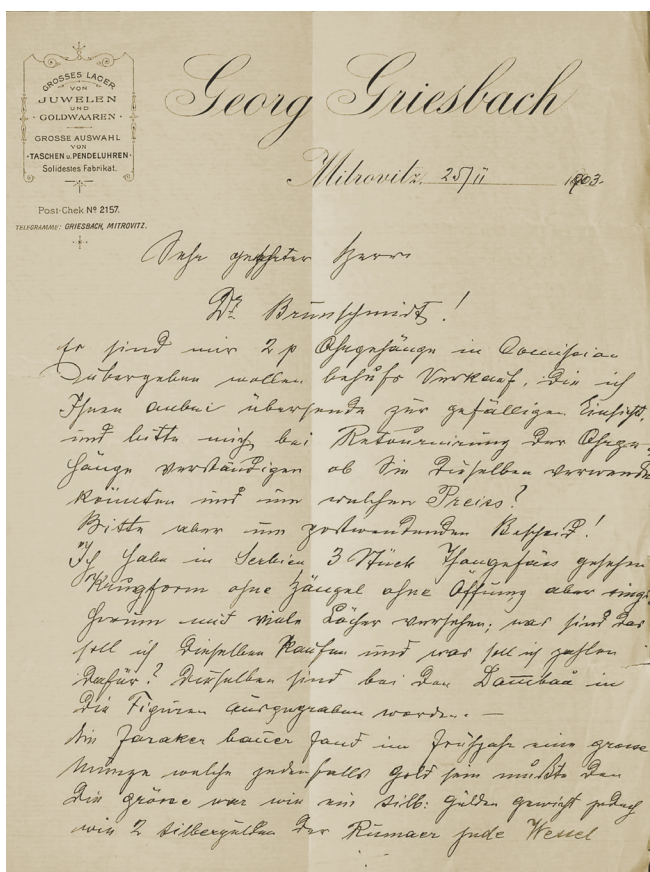 GROSSES LAGER
VON
JUWELEN
UND
GOLDWAAREN
GROSSE AUSWAHL
VON
TASCHEN u. PENDELUHREN
Solidestes Fabrikat.
Post-Chek Nº 2157.
TELEGRAMME: GRIESBACH, MITROVITZ.
Georg Griesbach
Mitrovitz, 25/II 1903.
Sehr geehrter Herr
Dr. Brunschmidt!
Es sind mir 2 p Ohrgehänge in Comission
übergeben wollen behufs Verkauf, die ich
Ihnen anbei übersende zur gefälligen Einsicht,
und bitte mich bei Retournirung der Ohrge-
hänge verständigen ob Sie dieselben verwenden
könnten und um welchen Preiss?
Bitte aber um postwendenden Bescheid!
Ich habe in Serbien 3 Stück Thongefäss gesehen
Krugform ohne Hängel ohne Öffnung aber rings
herum mit viele Löcher versehen; was sind das
soll ich dieselben kaufen und was soll ich zahlen
dafür? Dieselben sind bei den in
die Figuren ausgegraben worden. —
Ein bauer fand im Frühjahr eine grosse
Münze welche jedenfalls Gold sein mußte den
die grösse war wie ein silb: gulden gewicht jedoch
wie 2 silbergulden der Rumaer jude Wessel